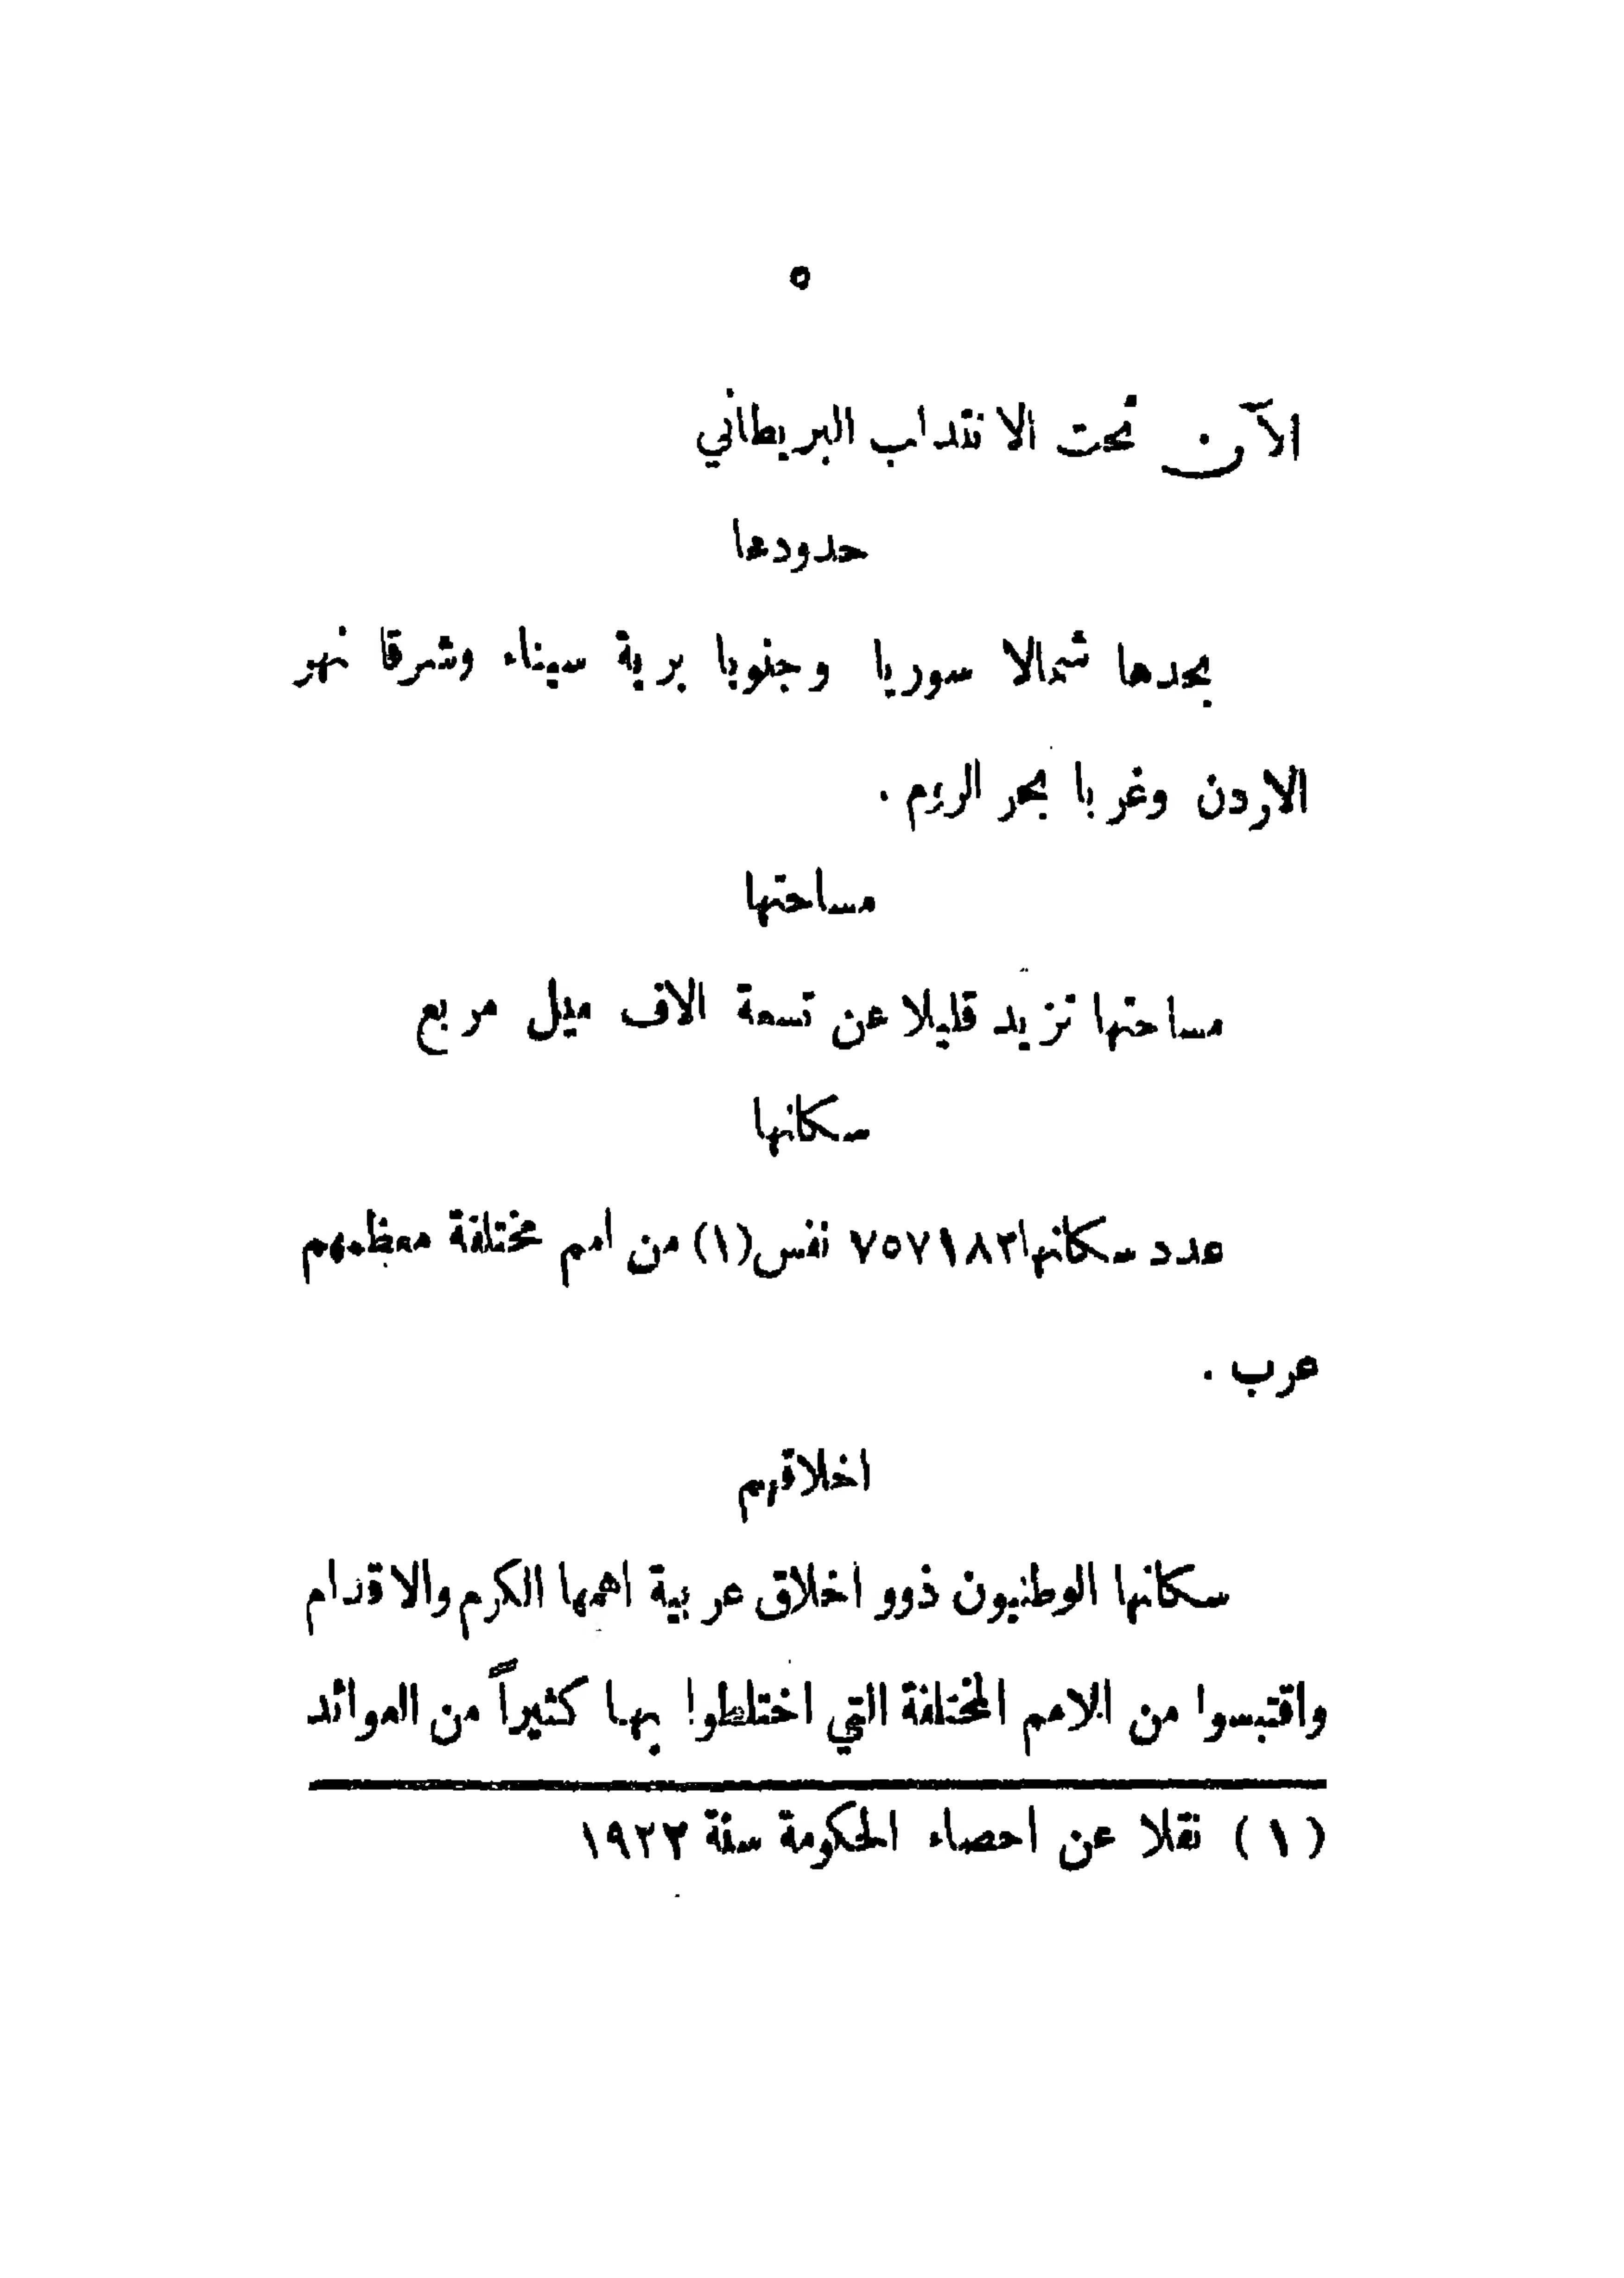 ٥
الآن تحت الانتداب البريطاني
حدودها
يحدها شمالا سوريا وجنوبا برية سيناء وشرقا نهر
الاردن وغربا بحر الروم .
مساحتها
مساحتها تزيد قليلا عن تسعة الاف ميل مربع
سكانها
عدد سكانها ٧٥٧١٨٢ نفس (١) من امم مختلفة معظمهم
عرب .
اخلاقهم
سكانها الوطنيون ذوو اخلاق عربية اهمها الكرم والاقدام
واقتبسوا من الامم المختلفة التي اختلطوا بها كثيراً من العوائد
(١) نقلا عن احصاء الحكومة سنة ١٩٢٢